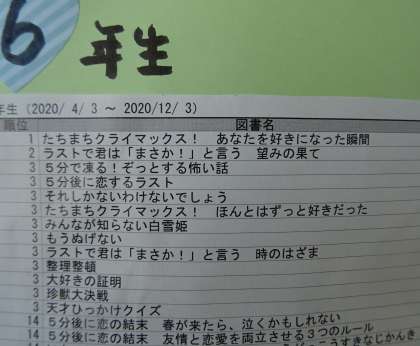 6年生
年生(2020/ 4/ 3 ～ 2020/12/ 3)
順位 図書名
1 たちまちクライマックス! あなたを好きになった瞬間
2 ラストで君は「まさか!」と言う 望みの果て
3 5分で凍る!ぞっとする怖い話
3 5分後に恋するラスト
3 それしかないわけないでしょう
3 たちまちクライマックス! ほんとはずっと好きだった
3 みんなが知らない白雪姫
3 もうぬげない
3 ラストで君は「まさか!」と言う 時のはざま
3 整理整頓
3 大好きの証明
3 珍獣大決戦
3 天才ひっかけクイズ
14 5分後に恋の結末 春が来たら、泣くかもしれない
14 5分後に恋の結末 友情と恋愛を両立させる3つのルール